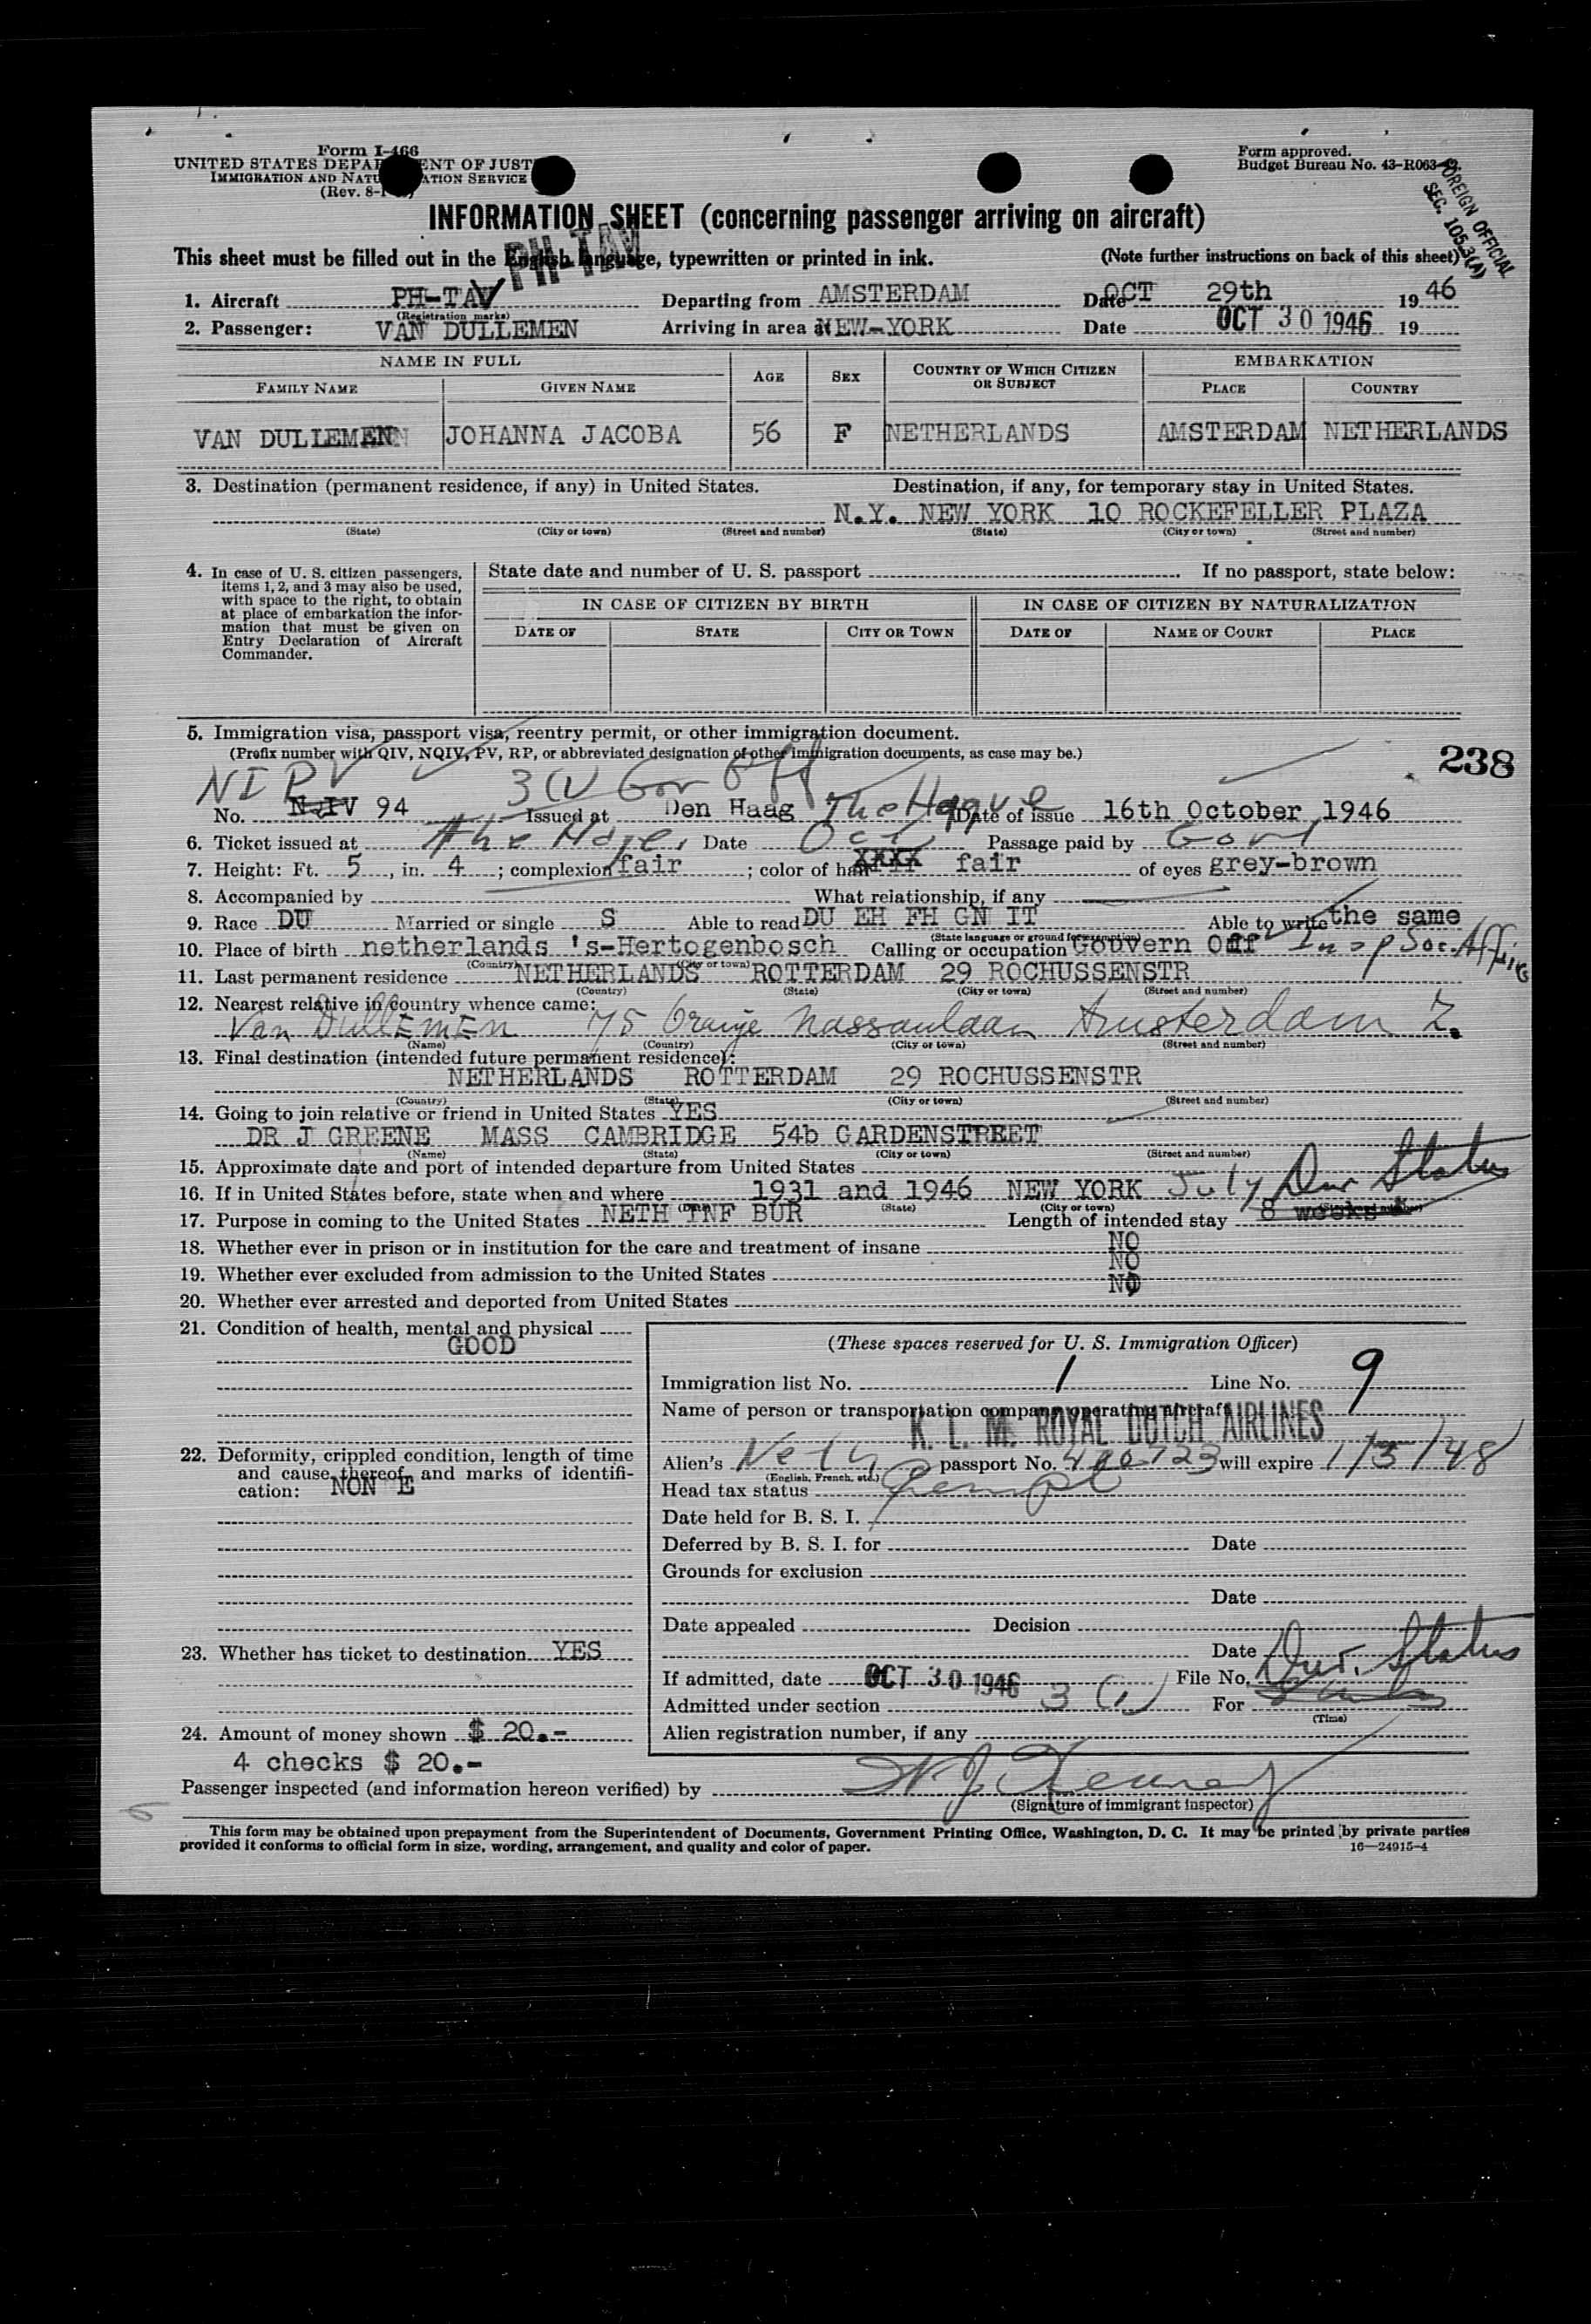 Form I-466
UNITED STATES DEPARTMENT OF JUSTICE
IMMIGRATION AND NATURALIZATION SERVICE
(Rev. 8-1
Form approved.
Budget Bureau No. 43-R063
FOREIGN OFFICIAL
SEC. 105.3(A)
INFORMATION SHEET (concerning passenger arriving on aircraft)
PH-TAV
This sheet must be filled out in the English language, typewritten or printed in ink. (Note further instructions on back of this sheet)
1. Aircraft PH-TAV Departing from AMSTERDAM Date OCT 29th 1946
(Registration marks)
2. Passenger: VAN DULLEMEN Arriving in area at NEW-YORK Date OCT 30 1946 19
NAME IN FULL AGE SEX COUNTRY OF WHICH CITIZEN OR SUBJECT EMBARKATION
FAMILY NAME GIVEN NAME PLACE COUNTRY
VAN DULLEMEN JOHANNA JACOBA 56 F NETHERLANDS AMSTERDAM NETHERLANDS
3. Destination (permanent residence, if any) in United States. Destination, if any, for temporary stay in United States.
N.Y. NEW YORK 10 ROCKEFELLER PLAZA
(State) (City or town) (Street and number) (State) (City or town) (Street and number)
4. In case of U. S. citizen passengers, items 1, 2, and 3 may also be used, with space to the right, to obtain at place of embarkation the information that must be given on Entry Declaration of Aircraft Commander.
State date and number of U. S. passport If no passport, state below:
IN CASE OF CITIZEN BY BIRTH IN CASE OF CITIZEN BY NATURALIZATION
DATE OF STATE CITY OR TOWN DATE OF NAME OF COURT PLACE
5. Immigration visa, passport visa, reentry permit, or other immigration document.
(Prefix number with QIV, NQIV, PV, RP, or abbreviated designation of other immigration documents, as case may be.)
238
NI PV 3(1) Gov Off
No. NQIV 94 Issued at Den Haag The Hague Date of issue 16th October 1946
6. Ticket issued at the Hage, Date Oct Passage paid by Govt
7. Height: Ft. 5, in. 4; complexion fair; color of hair XXXX fair of eyes grey-brown
8. Accompanied by What relationship, if any
9. Race DU Married or single S Able to read DU EH FH GN IT Able to write the same
(State language or ground for exemption)
10. Place of birth netherlands 's-Hertogenbosch Calling or occupation Gouvern Off Insp Soc. Affairs
(Country) (City or town)
11. Last permanent residence NETHERLANDS ROTTERDAM 29 ROCHUSSENSTR
(Country) (State) (City or town) (Street and number)
12. Nearest relative in country whence came:
Van DULLEMEN 75 Oranje Nassaulaan Amsterdam Z.
(Name) (Country) (City or town) (Street and number)
13. Final destination (intended future permanent residence):
NETHERLANDS ROTTERDAM 29 ROCHUSSENSTR
(Country) (State) (City or town) (Street and number)
14. Going to join relative or friend in United States YES
DR J GREENE MASS CAMBRIDGE 54b GARDENSTREET
(Name) (State) (City or town) (Street and number)
15. Approximate date and port of intended departure from United States
16. If in United States before, state when and where 1931 and 1946 NEW YORK July Dur Status
(State) (City or town)
17. Purpose in coming to the United States NETH INF BUR Length of intended stay 8 weeks
18. Whether ever in prison or in institution for the care and treatment of insane NO
19. Whether ever excluded from admission to the United States NO
20. Whether ever arrested and deported from United States NO
21. Condition of health, mental and physical
GOOD
22. Deformity, crippled condition, length of time and cause thereof, and marks of identification: NON E
23. Whether has ticket to destination YES
24. Amount of money shown $ 20.-
4 checks $ 20.-
(These spaces reserved for U. S. Immigration Officer)
Immigration list No. 1 Line No. 9
Name of person or transportation company operating aircraft
K. L. M. ROYAL DUTCH AIRLINES
Alien's Neth passport No. 420723 will expire 1/3/48
(English, French, etc.)
Head tax status Exempt
Date held for B. S. I.
Deferred by B. S. I. for Date
Grounds for exclusion
Date
Date appealed Decision
Date Dur. Status
If admitted, date OCT 30 1946 File No.
Admitted under section 3 (1) For
(Time)
Alien registration number, if any
Passenger inspected (and information hereon verified) by
(Signature of immigrant inspector)
This form may be obtained upon prepayment from the Superintendent of Documents, Government Printing Office, Washington, D. C. It may be printed by private parties
provided it conforms to official form in size, wording, arrangement, and quality and color of paper. 16—24915-4